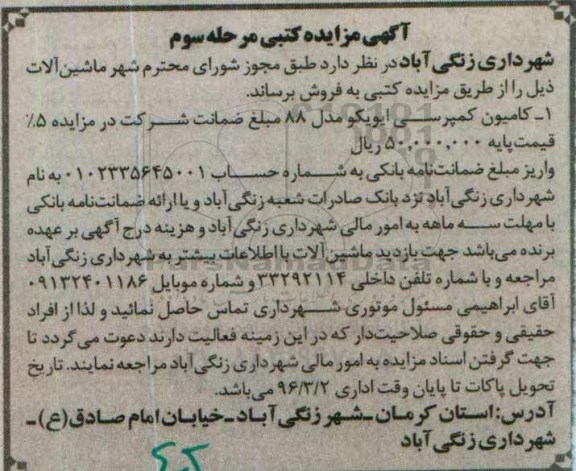 آگهی مزایده کتبی مرحله سوم
شهرداری زنگی آباد در نظر دارد طبق مجوز شورای محترم شهر ماشین‌آلات
ذیل را از طریق مزایده کتبی به فروش برساند.
۱ـ کامیون کمپرسی ایویکو مدل ۸۸ مبلغ ضمانت شرکت در مزایده ۵٪
قیمت پایه ۵۰,۰۰۰,۰۰۰ ریال
واریز مبلغ ضمانت‌نامه بانکی به شماره حساب ۰۱۰۲۳۳۵۶۴۵۰۰۱ به نام
شهرداری زنگی آباد نزد بانک صادرات شعبه زنگی آباد و یا ارائه ضمانت‌نامه بانکی
با مهلت سه ماهه به امور مالی شهرداری زنگی آباد و هزینه درج آگهی بر عهده
برنده می‌باشد جهت بازدید ماشین آلات با اطلاعات بیشتر به شهرداری زنگی آباد
مراجعه و با شماره تلفن داخلی ۳۳۲۹۲۱۱۴ و شماره موبایل ۰۹۱۳۲۴۰۱۱۸۶
آقای ابراهیمی مسئول موتوری شهرداری تماس حاصل نمائید و لذا از افراد
حقیقی و حقوقی صلاحیت‌دار که در این زمینه فعالیت دارند دعوت می‌گردد تا
جهت گرفتن اسناد مزایده به امور مالی شهرداری زنگی آباد مراجعه نمایند. تاریخ
تحویل پاکات تا پایان وقت اداری ۹۶/۳/۲ می‌باشد.
آدرس: استان کرمان ـ شهر زنگی آباد ـ خیابان امام صادق (ع) ـ
شهرداری زنگی آباد